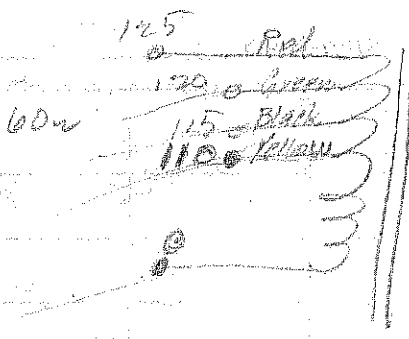 125 Red
120 Green
60~
115 Black
110 Yellow
0